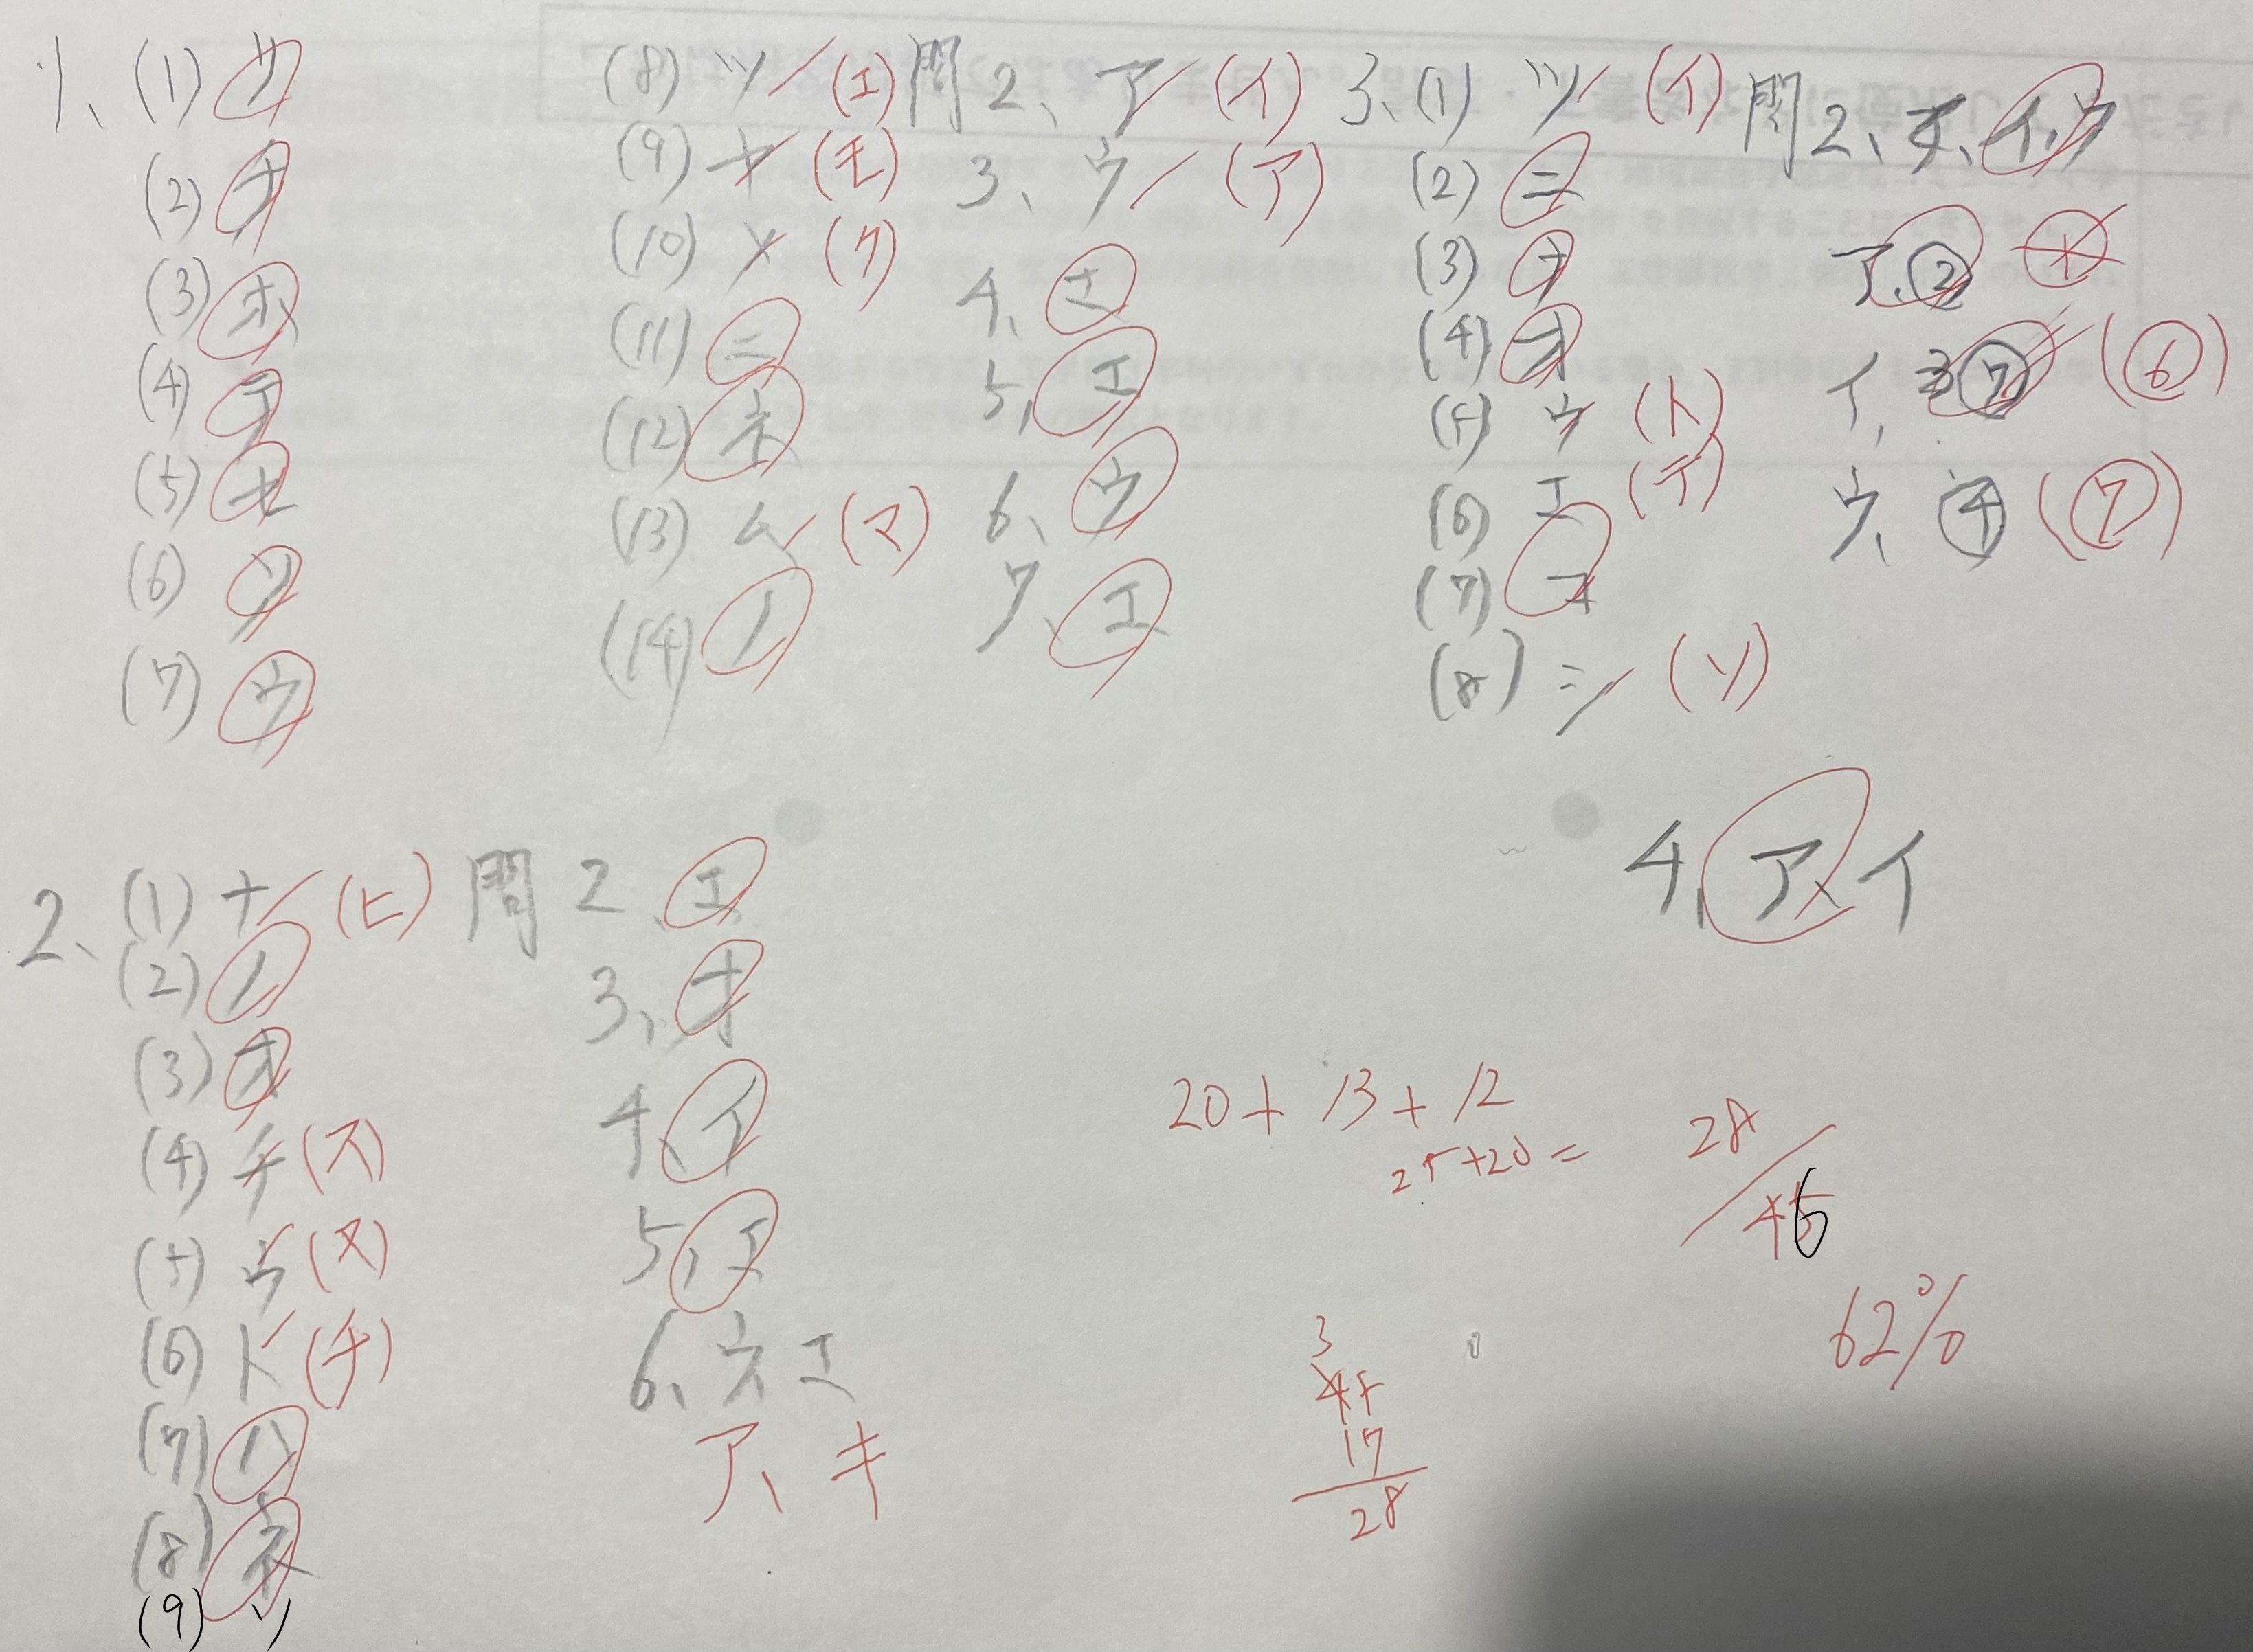 1、(1) サ
(2) ナ
(3) ホ
(4) テ
(5) セ
(6) ソ
(7) ウ
(8) ツ (エ)
(9) ヤ (モ)
(10) メ (ク)
(11) ニ
(12) ネ
(13) ム (マ)
(14) ノ
問2、ア (イ)
3、ウ (ア)
4、エ
5、エ
6、ウ
7、エ
3、(1) ツ (イ)
(2) ニ
(3) ナ
(4) オ
(5) ウ (ト)
(6) エ (テ)
(7) コ
(8) シ (ソ)
問2、イ、ウ
ア、②
イ、⑦ (⑥)
ウ、④ (⑦)
4、ア、イ
2、(1) ナ (ヒ)
(2) ノ
(3) オ
(4) チ (ス)
(5) ウ (ヌ)
(6) ト (チ)
(7) ハ
(8) ネ
(9) ソ
問2、エ
3、オ
4、イ
5、エ
6、ウ、エ
ア、キ
20+13+12
25+20=
28/45
62%
3
45
17
28